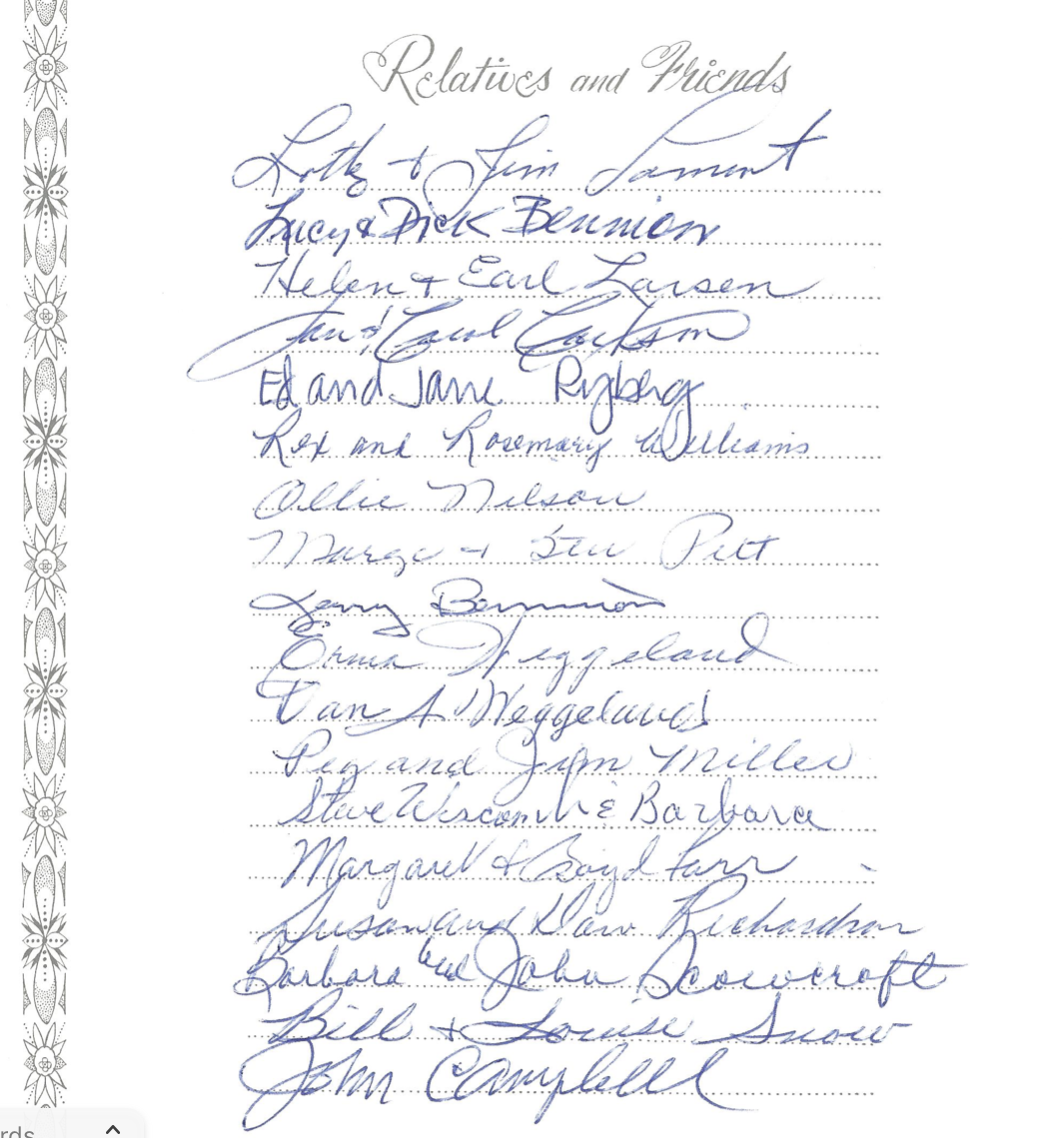 Relatives and Friends
& Jim Lamont
Lucy & Dick Bennion
Helen & Earl Larsen
& Carol
Ed and Jane Ryberg
Rex and Rosemary Williams
Ollie Nilson
Marge & Stu Pitt
Bennion
Erma Weggeland
Dan A Weggeland
Peg and Jim Miller
Steve Wiscomb & Barbara
Margaret & Boyd Farr
Susan and Richardson
Barbara and John Scowcroft
Bill & Louise Snow
John Campbell
rds